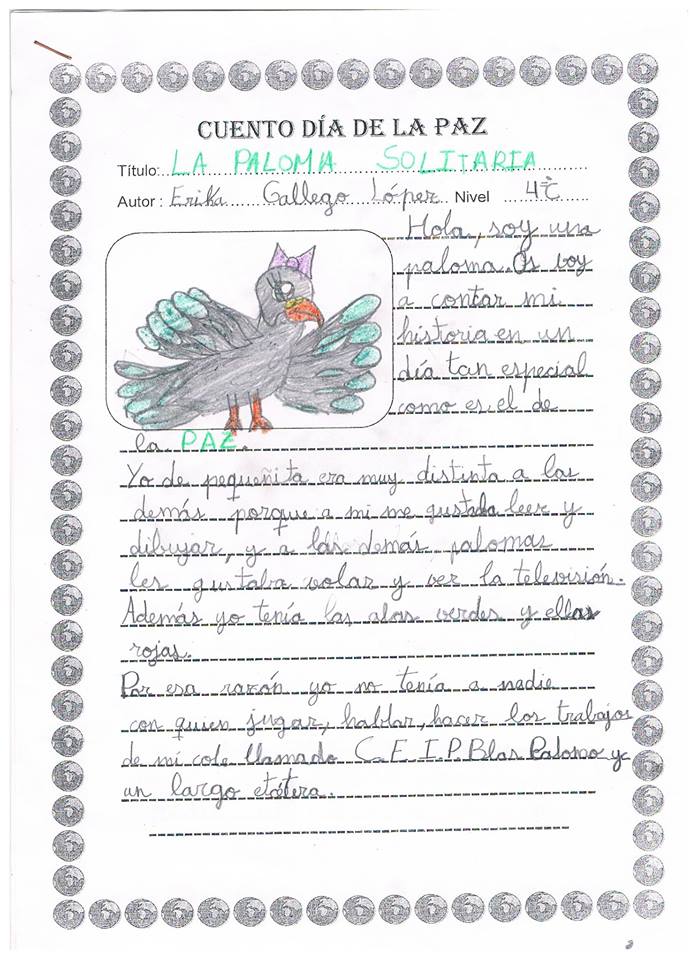 CUENTO DÍA DE LA PAZ
Título: LA PALOMA SOLITARIA
Autor : Erika Gallego López Nivel 4ºC
Hola, soy una
paloma. Os voy
a contar mi
historia en un
día tan especial
como es el de
la PAZ.
Yo de pequeñita era muy distinta a las
demás porque a mi me gustaba leer y
dibujar, y a las demás palomas
les gustaba volar y ver la televisión.
Además yo tenía las alas verdes y ellas
rojas.
Por esa razón yo no tenía a nadie
con quien jugar, hablar, hacer los trabajos
de mi cole llamado C.E.I.P. Blas Palomo y
un largo etcétera.